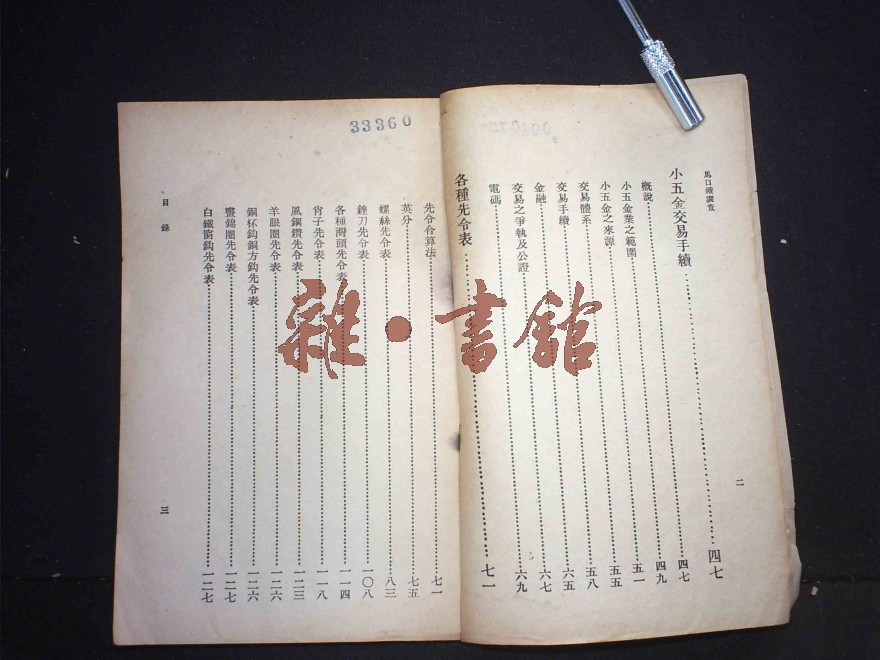 馬口鐵調查
二
小五金交易手續……四七
概說……四七
小五金業之範圍……四九
小五金之來源……五一
交易體系……五五
交易手續……五八
金融……六五
交易之爭執及公證……六七
電碼……六九
各種先令表……七一
33360
先令合算法……七一
英分……七五
螺絲先令表……八三
銼刀先令表……一〇八
各種灣頭先令表……一一四
宵子先令表……一一八
風鋼鑽先令表……一二三
羊眼圈先令表……一二六
銅杯鈎銅方鈎先令表……一二六
畫錦圈先令表……一二七
白鐵窗鈎先令表……一二七
目錄
三
雜·書館